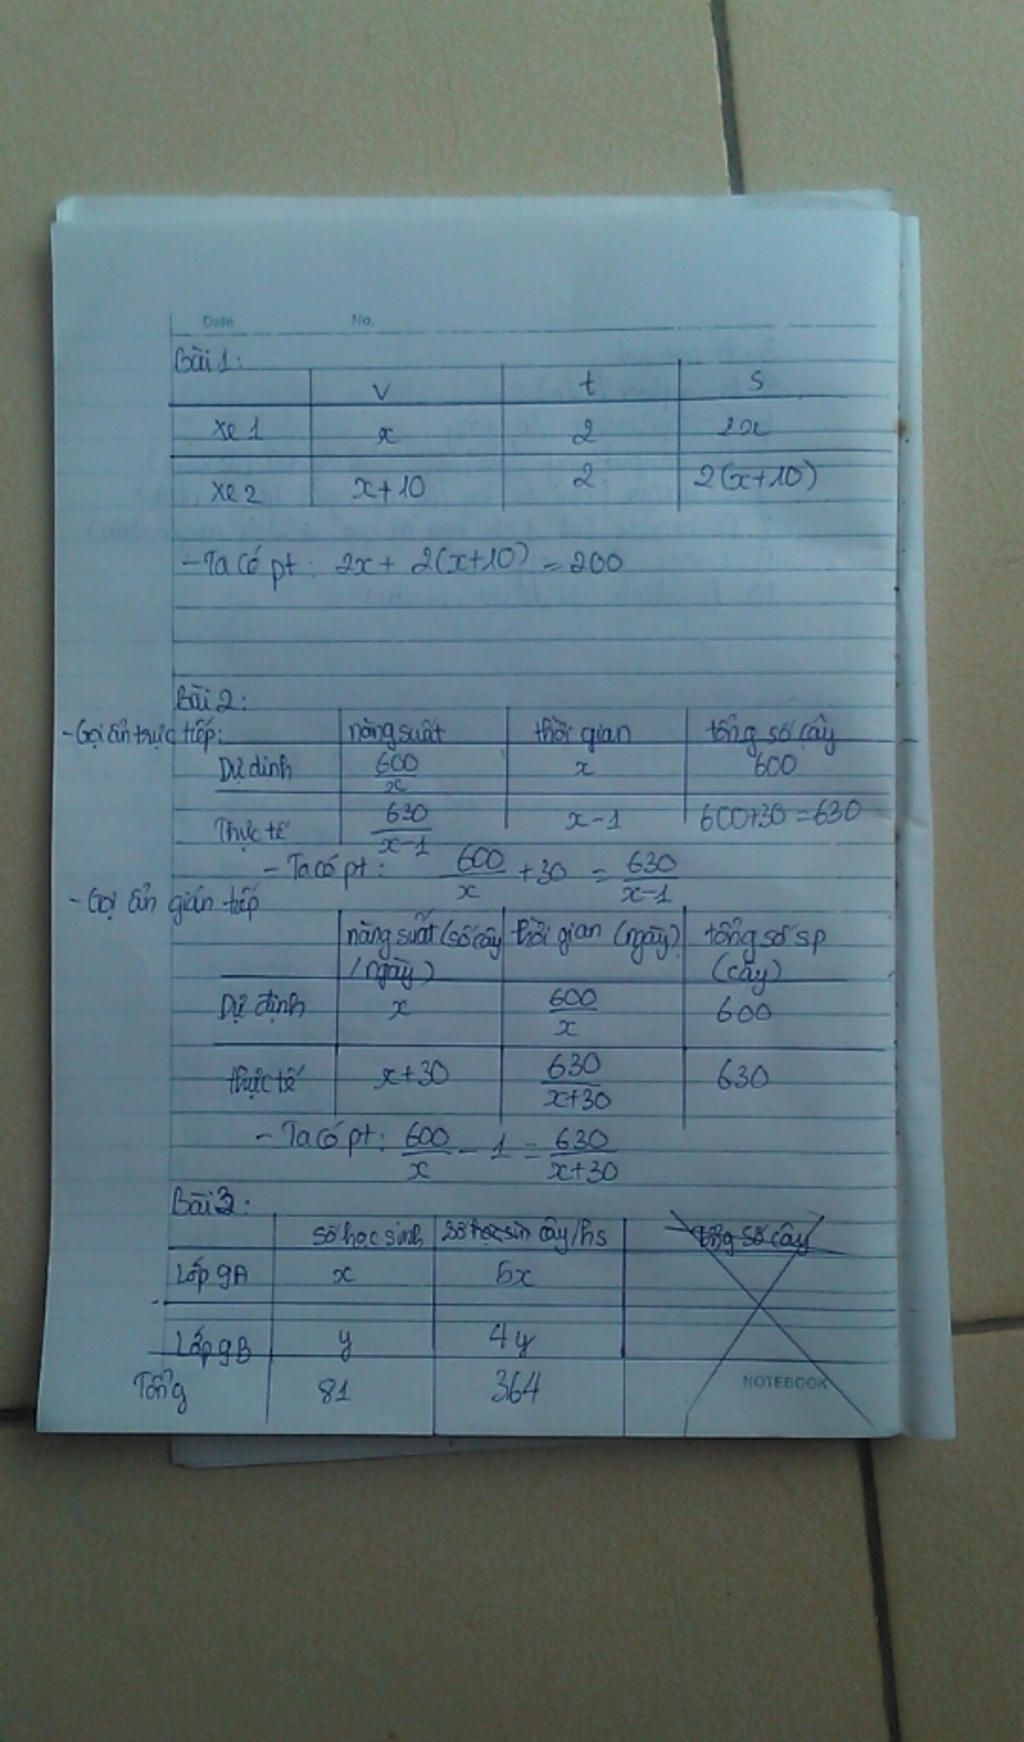 Date No.
Bài 1:
v t s
Xe 1 x 2 2x
Xe 2 x+10 2 2(x+10)
- Ta có pt: 2x + 2(x+10) = 200
Bài 2:
- Gọi ẩn trực tiếp: năng suất thời gian tổng số cây
Dự định 600/x x 600
Thực tế 630/x-1 x-1 600+30=630
- Ta có pt: 600/x + 30 = 630/x-1
- Gọi ẩn gián tiếp
năng suất (số cây thời gian (ngày) tổng số sp
/ngày) (cây)
Dự định x 600/x 600
thực tế x+30 630/x+30 630
- Ta có pt: 600/x - 1 = 630/x+30
Bài 3:
số học sinh số học sin cây/hs tổng số cây
Lớp 9A x 5x
Lớp 9B y 4y
Tổng 81 364
NOTEBOOK